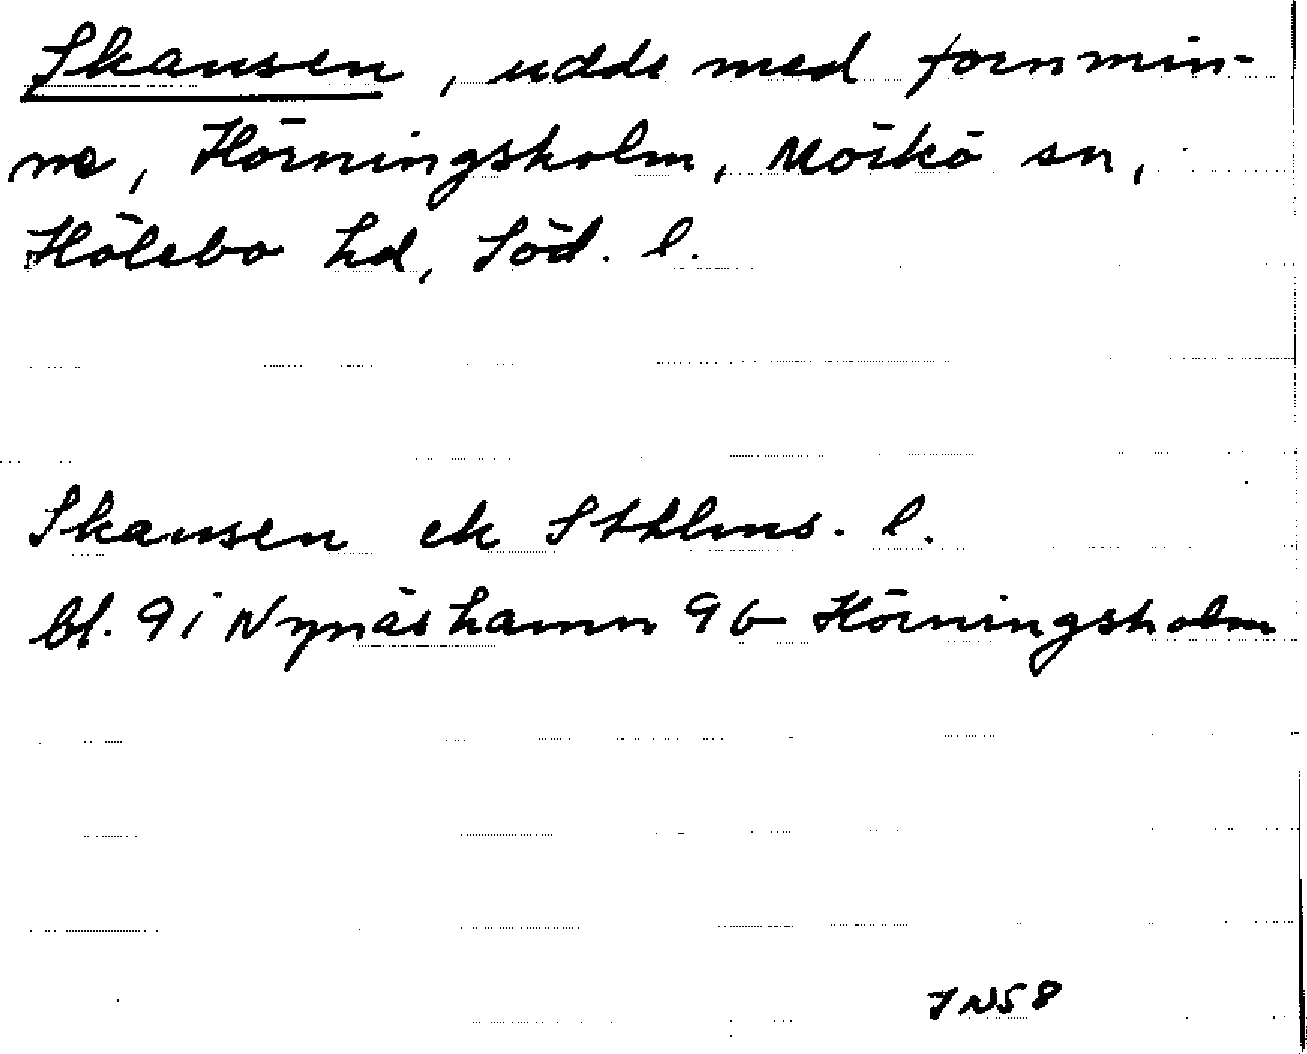 Skansen, udde med fornmin-
ne, Hörningsholm, Mörkö sn,
Hölebo hd, Söd. l.
Skansen ek Sthlms. l.
bl. 9 i Nynäshamn 9 b Hörningsholm
JN58